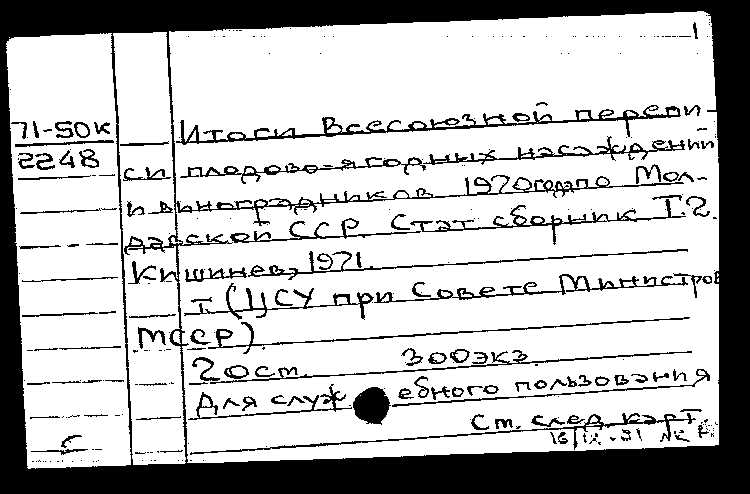 1
71-50к
2248
Итоги Всесоюзной перепи-
си плодово-ягодных насаждений
и виноградников 1970 года по Мол-
давской ССР. Стат сборник Т.2.
Кишинев, 1971.
т. (ЦСУ при Совете Министров
МССР)
2 ост. 300экз.
Для служебного пользования
См. след. карт.